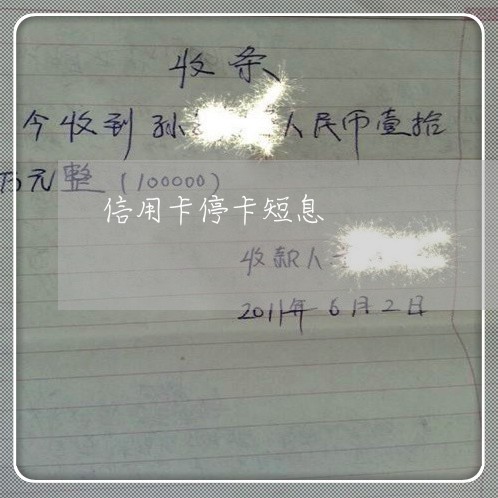 收条
今收到孙 人民币壹拾
万元整（100000）
信用卡停卡短息
收款人
2011年6月2日